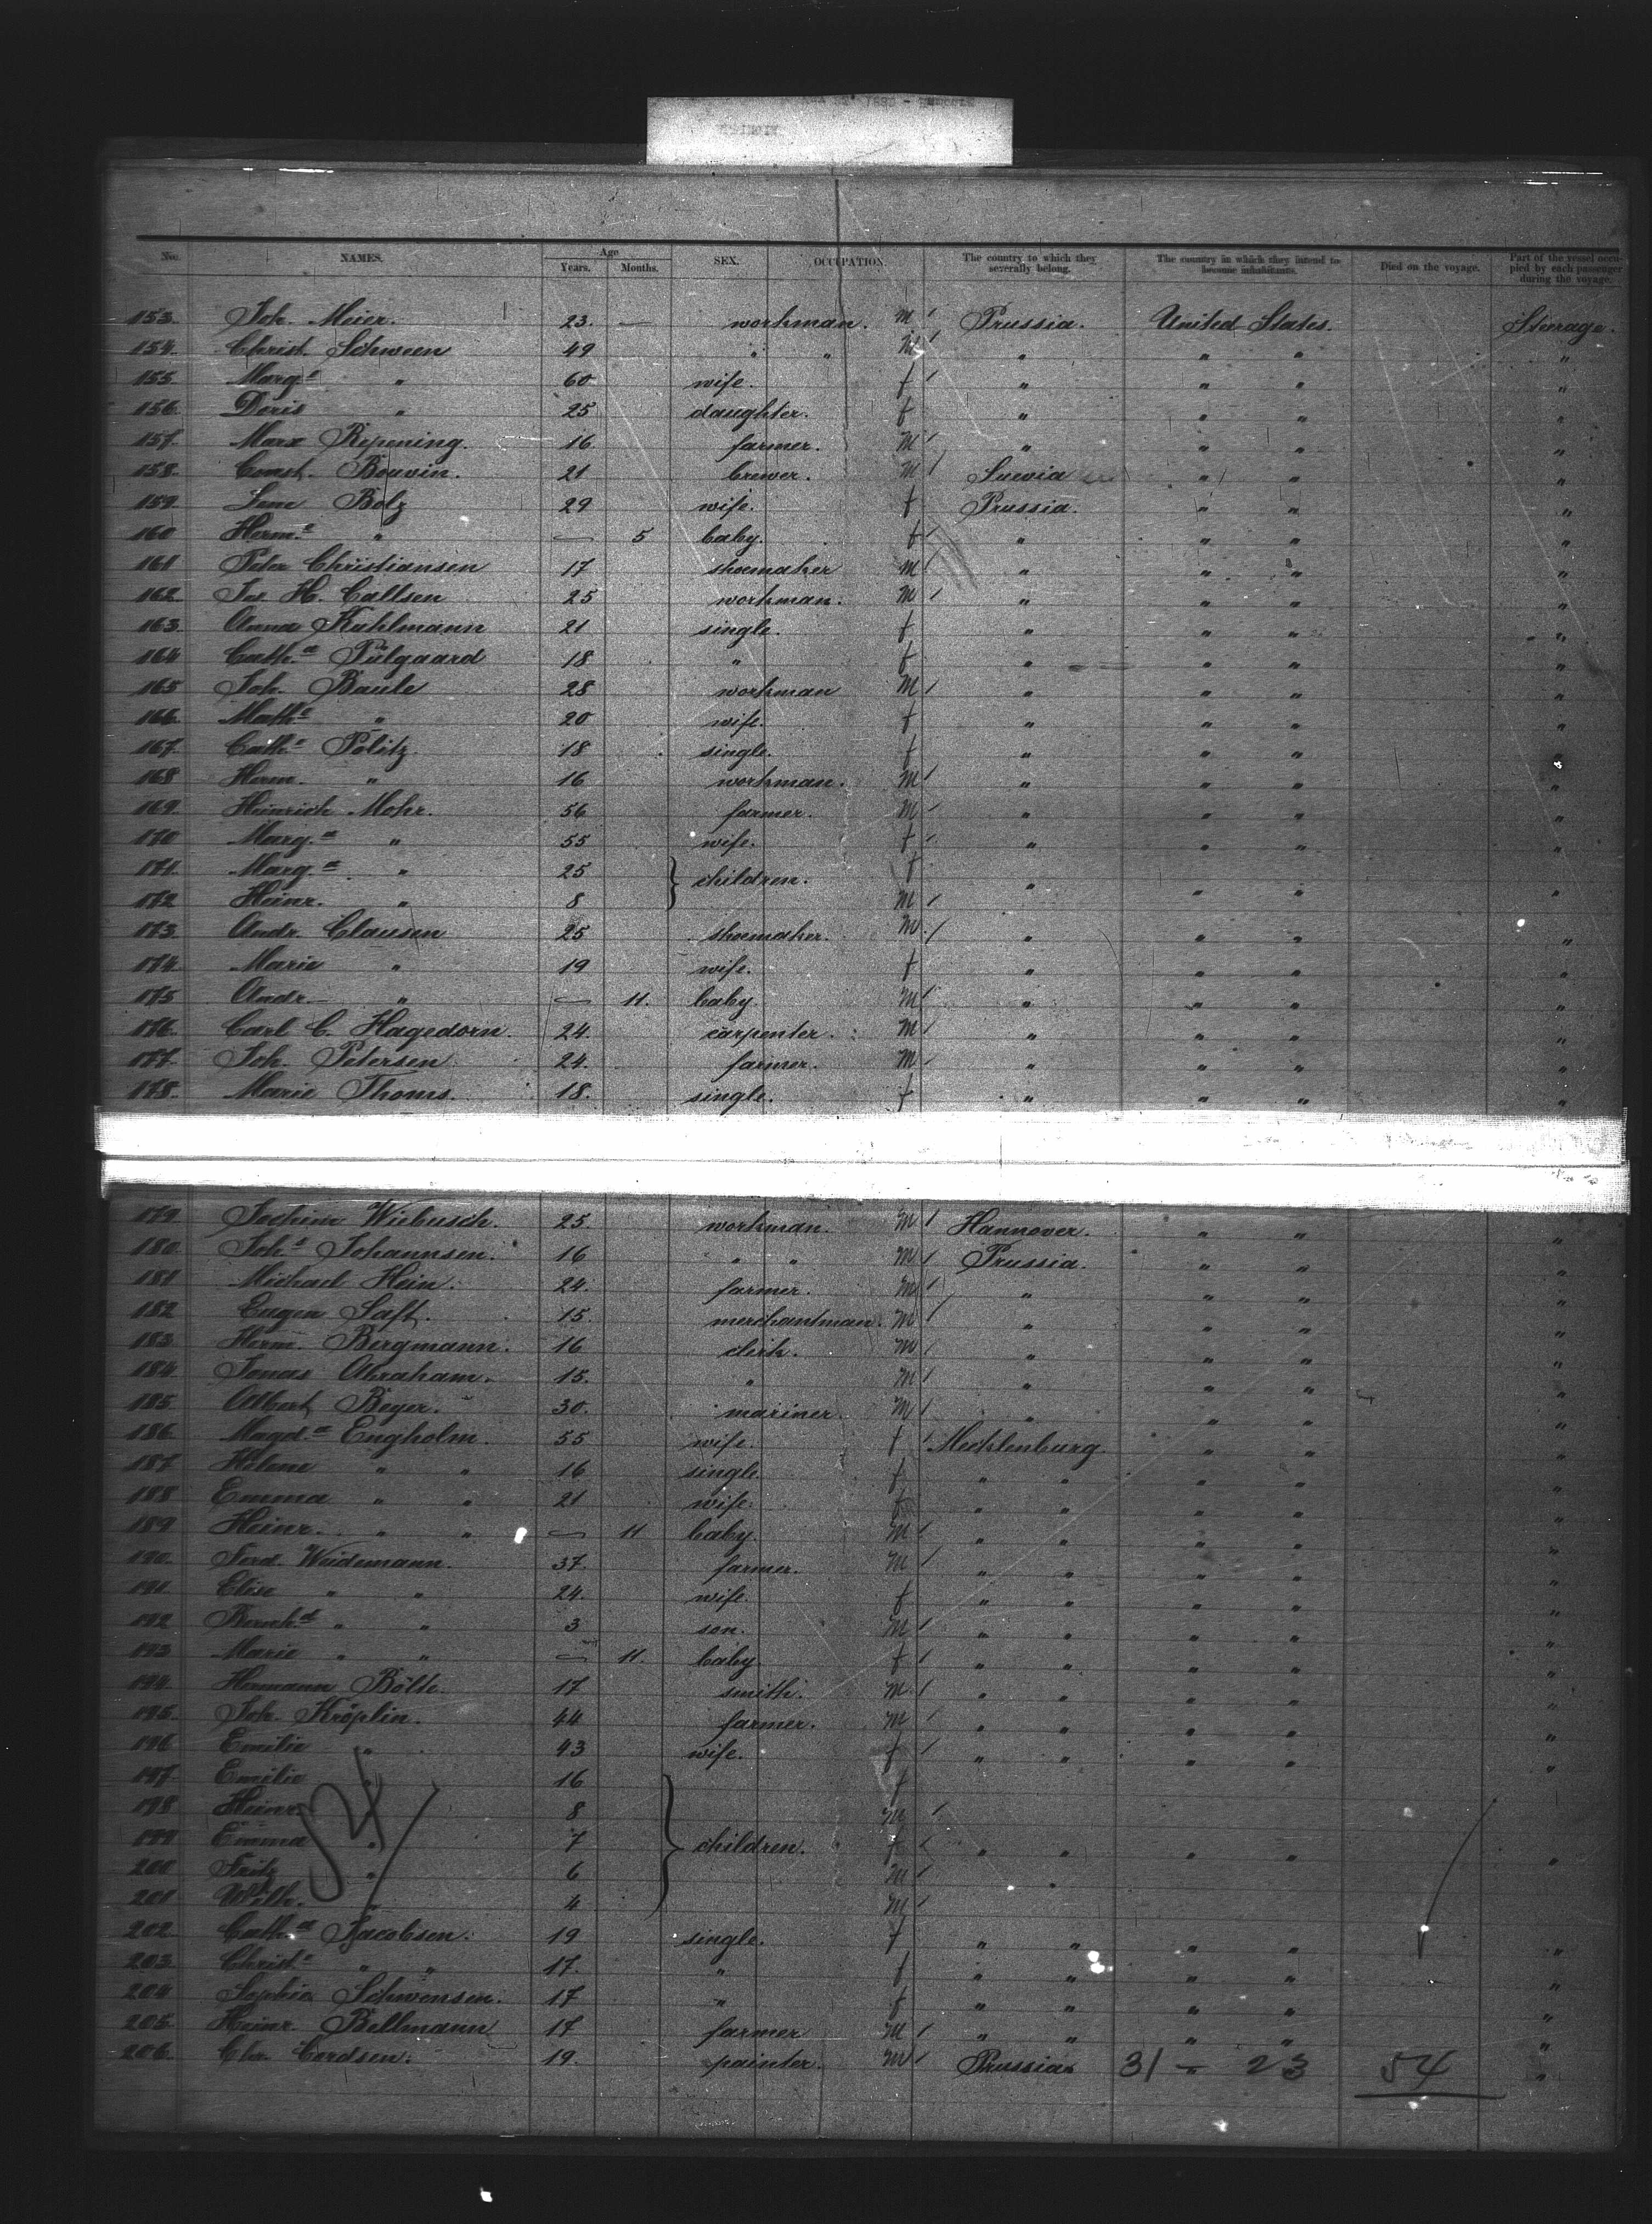 No. NAMES. Age Years. Months. SEX. OCCUPATION. The country to which they severally belong. The country in which they intend to become inhabitants. Died on the voyage. Part of the vessel occupied by each passenger during the voyage.
153. Joh. Meier. 23. — workman. M / Prussia. United States. Steerage.
154. Christ. Schween 49 " " M / " " " "
155. Marg.a " 60 wife. f / " " " "
156. Doris " 25 daughter. f " " " "
157. Marx Repening. 16 farmer. M / " " " "
158. Const. Bouvin. 21 brewer. M / Suevia " " "
159. Bolz 29 wife. f Prussia. " " "
160 Herm.e " — 5 baby. f / " " " "
161 Peter Christiansen 17 shoemaker M / " " " "
162. H. Callsen 25 workman. M / " " " "
163. Anna Kuhlmann 21 single. f " " " "
164 Cath.a Fülgaard 18 " f " " " "
165 Joh. Baule 28 workman M / " " " "
166. Math.e " 20 wife. f " " " "
167. Cath.a Politz 18 single. f " " " "
168 Herm. " 16 workman. M / " " " "
169. Heinrich Mohr. 56 farmer. M / " " " "
170 Marg.a " 55 wife. f / " " " "
171. Marg.a " 25 } children. f " " " "
172. Heinr. " 8 M /
173. Andr. Clausen 25 shoemaker. M / " " " "
174. Marie " 19 wife. f " " " "
175 Andr. " — 11. baby. M / " " " "
176. Carl C. Hagedorn. 24. carpenter. M / " " " "
177. Joh. Petersen 24. farmer. M / " " " "
178. Marie Thoms. 18. single. f " " " "
179. Jochim Wiebusch. 25. workman. M / Hannover. " " "
180. Joh.s Johannsen. 16 " " M / Prussia. " " "
181 Michael Hein. 24. farmer. M / " " " "
182 Eugen Saft. 15. merchantman. M / " " " "
183. Herm. Bergmann. 16 clerk. M / " " " "
184. Jonas Abraham. 15. " M / " " " "
185. Albert Beyer. 30. mariner. M / " " " "
186. Magd.a Engholm. 55 wife. f / Mecklenburg. " " "
187. Helene " " 16 single. f " " " " "
188 Emma " " 21 wife. f " " " " "
189 Heinr. " " — 11 baby. M / " " " " "
190. Ferd. Weidemann. 37. farmer. M / " " " " "
191. Elise " " 24. wife. f " " " " "
192. Bernh.d " " 3 son. M / " " " " "
193 Marie " " — 11. baby. f / " " " " "
194. Hermann Bölte. 17 smith. M / " " " " "
195. Joh. Kröplin. 44 farmer. M / " " " " "
196 Emilie " 43 wife. f / " " " " "
197. Emilie 16 f
198 Heinr. 8 M /
199 Emma " 7 } children. f / " " " " "
200 Fritz " 6 M /
201 Wilh. " 4 M /
202. Cath.a Jacobsen. 19 single. f " " " " "
203. Christ.e " " 17. " f " " " " "
204 Sophia Schwensen. 17 " f " " " " "
205. Heinr. Bellmann 17 farmer M / " " " " "
206. Cordsen. 19. painter. M / Prussia. 31 - 23 54 "
54